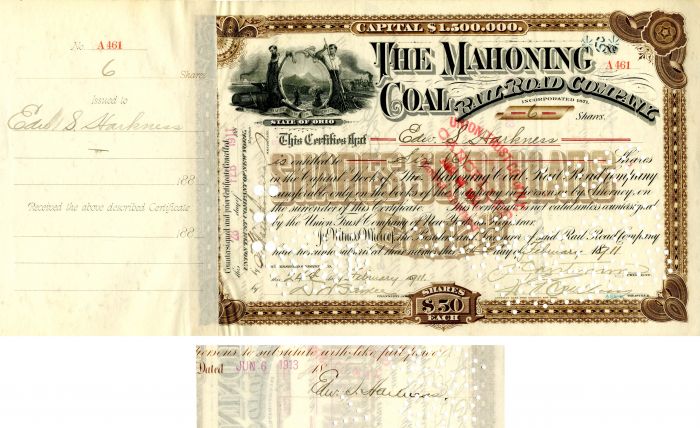 No. A461
6 Shares
Issued to
Edw. S. Harkness
188
Received the above described Certificate
188
CAPITAL $1,500,000.
THE MAHONING
COAL RAIL-ROAD COMPANY
A461
INCORPORATED 1871.
STATE OF OHIO
6 Shares.
This Certifies that Edw. S. Harkness
is entitled to Six Shares
in the Capital Stock of The Mahoning Coal Rail Road Company
transferable only on the books of the Company in person or by Attorney, on
the surrender of this Certificate. This Certificate not valid unless countersigned
by the Union Trust Company of New York as Registrar.
In Witness Whereof the President and Treasurer of said Rail Road Company
have hereunto subscribed their names this day of February 1911.
the 24th day February 1911.
by
SHARES
$50
EACH
persons to substitute with like full power
Dated JUN 6 1913 18
Edw. S. Harkness.